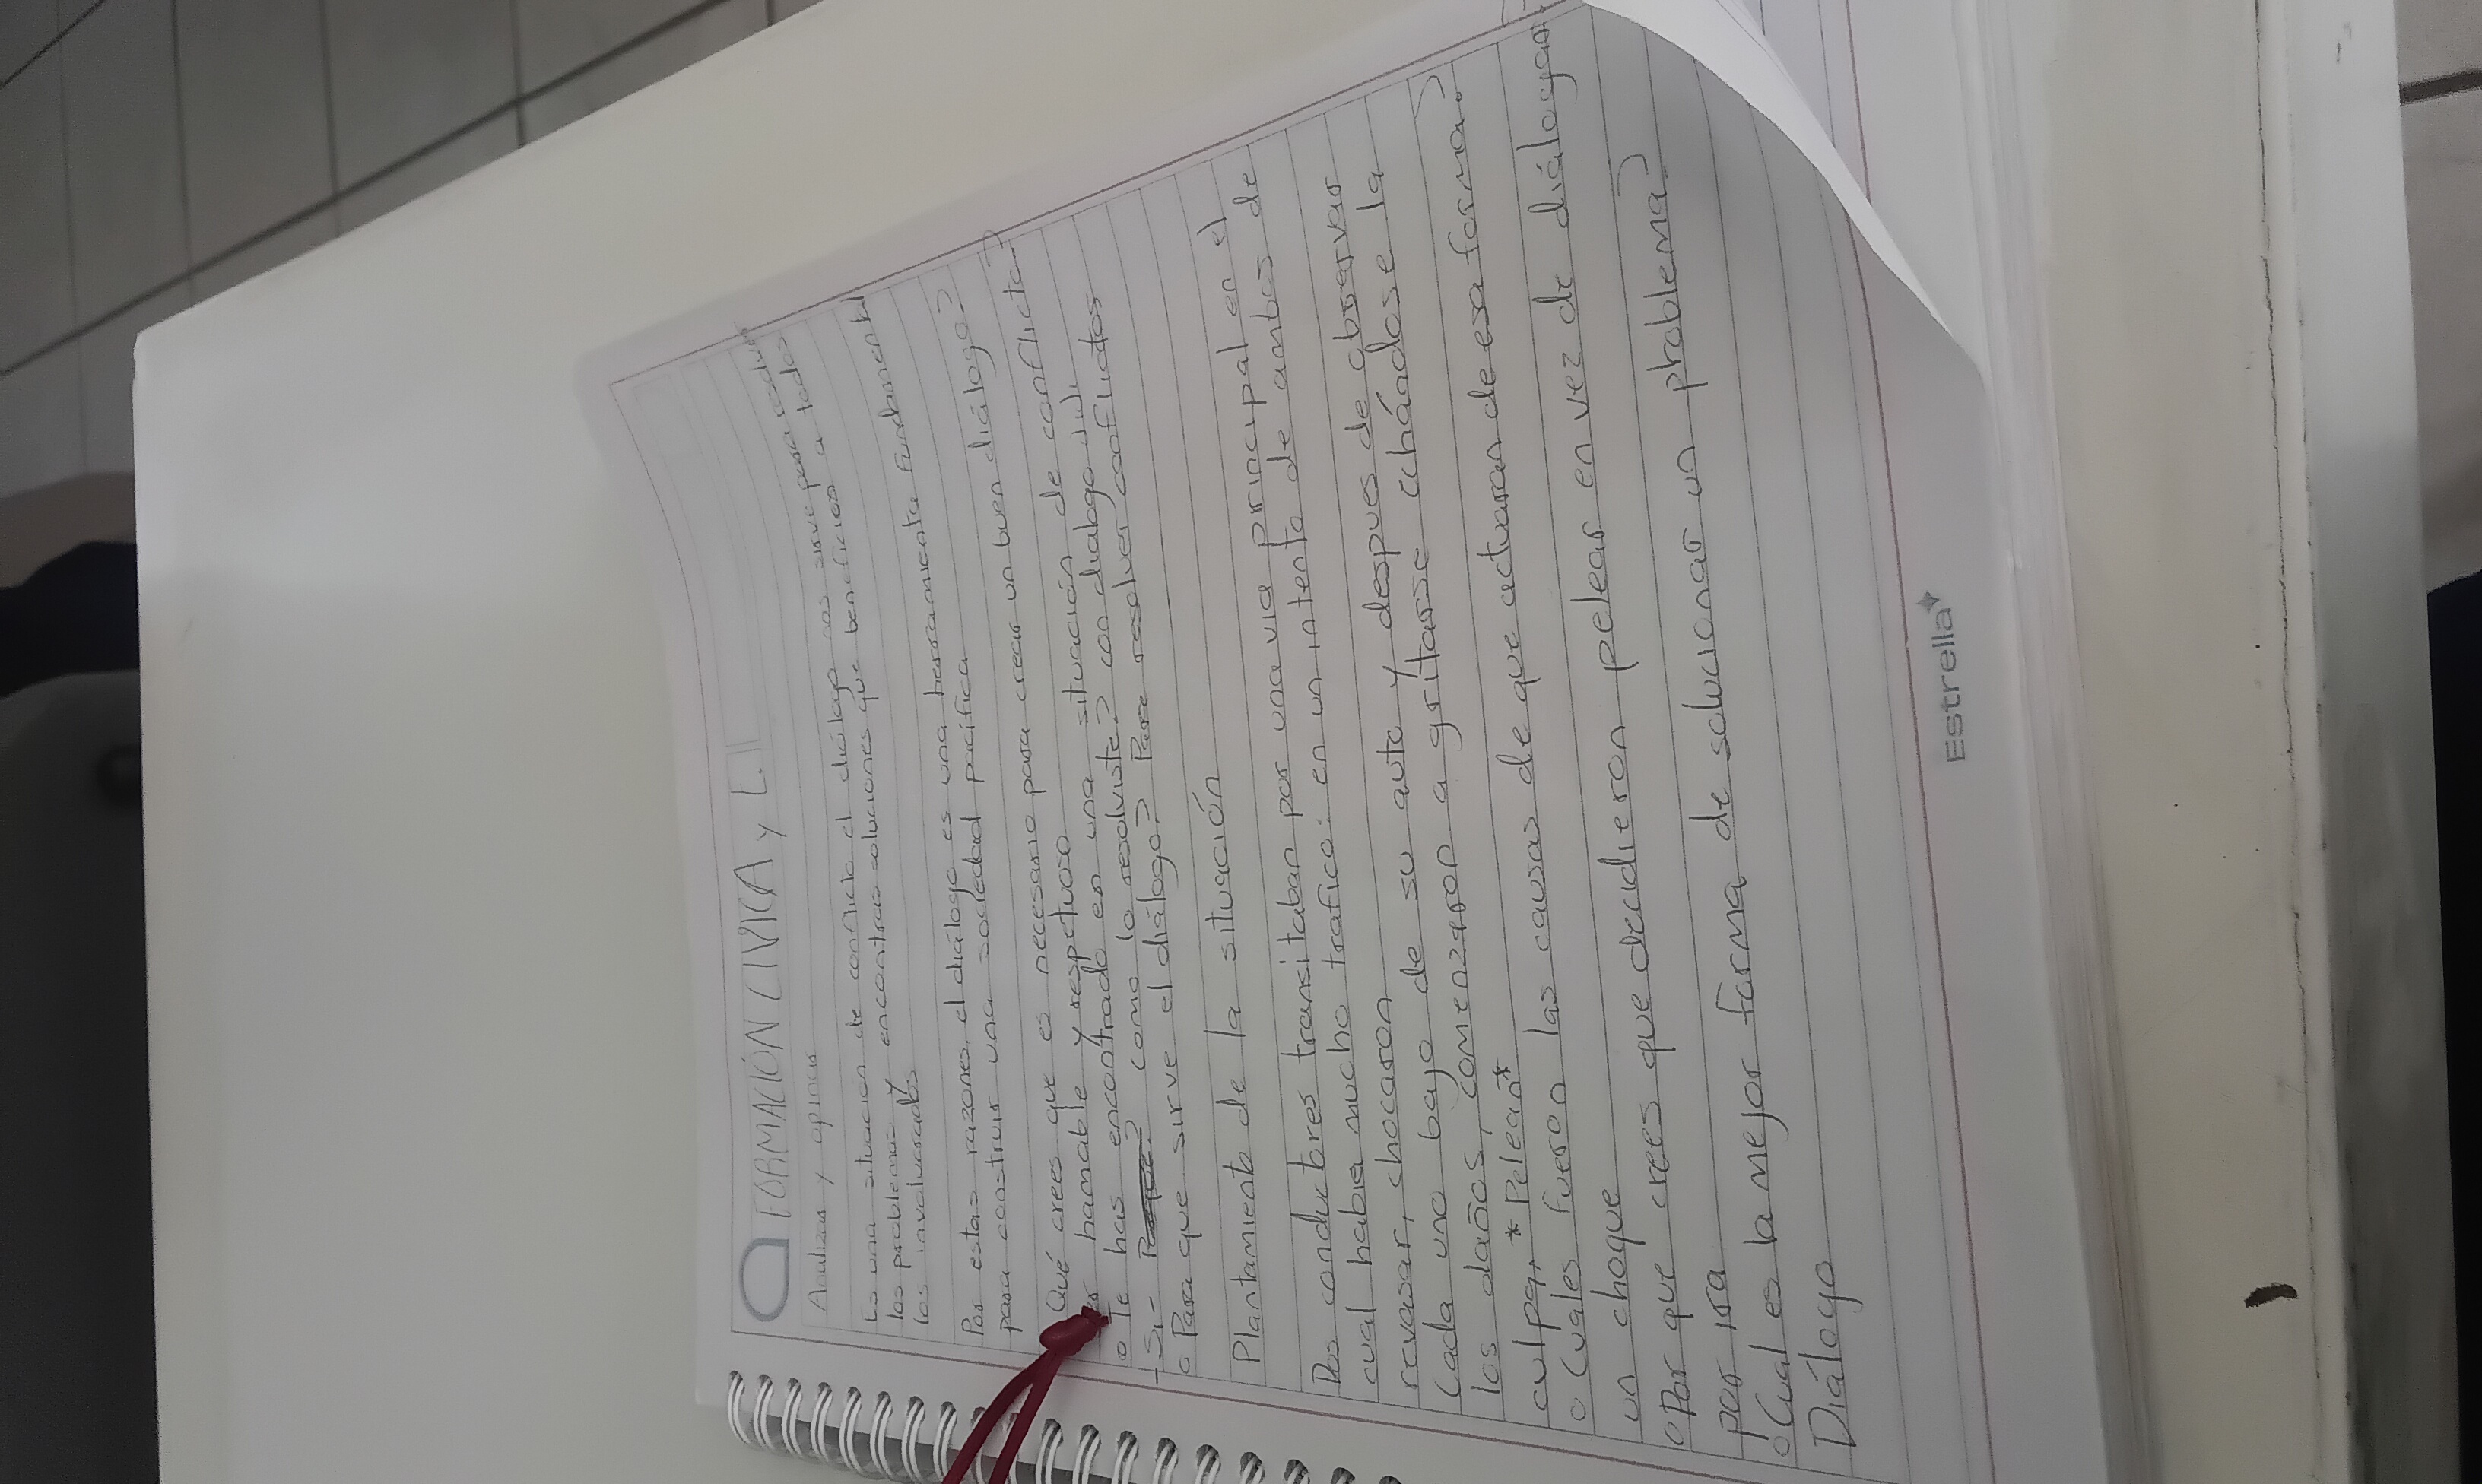 FORMACIÓN CIVICA y E.
Analizar y opinar
Es una situacion de conflicto el diálago nos sirve para resolver
los problemas y encontrar soluciones que benificien a todos
los involucrados
Por estas razones, el diálogo es una herramienta fundamental
para construir una sociedad pacífica
Qué crees que es necesario para crear un buen diálogo?
ser hamable y respetuoso
o Te has encontrado en una situación de conflicto?
-Si- como lo resolviste? con dialogo
o Para que sirve el diálogo? Para resolver conflictos
Plantamiento de la situación
Dos conductores transitaban por una via principal en el
cual habia mucho trafico: en un intento de ambos de
revasar, chocaron
Cada uno bajo de su auto y despues de obsarvar
los daños, comenzaron a gritarse echándose la
culpa, *Pelean*
o Cuales fueron las causas de que actuaran de esa forma?
un choque
o Por que crees que decidieron pelear en vez de diálogar?
por ira
o Cual es la mejor forma de solucionar un problema?
Diálogo
Estrella